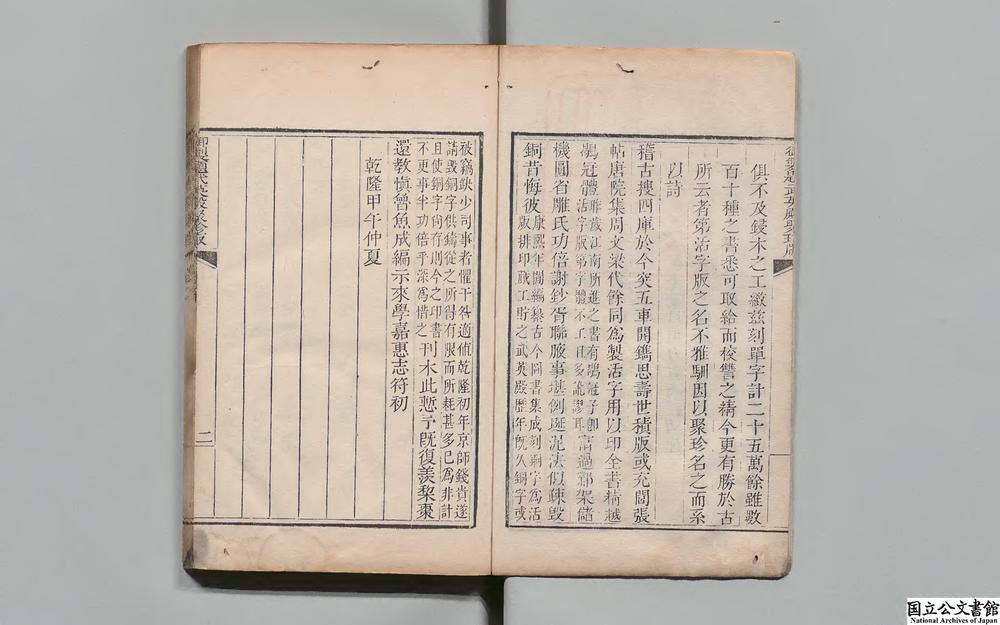 御製題武英殿聚珍版
俱不及鋟木之工緻茲刻單字計二十五萬餘雖數
百十種之書悉可取給而校讐之精今更有勝於古
所云者第活字版之名不雅馴因以聚珍名之而系
以詩
稽古搜四庫於今突五車開鐫思壽世積版或充閭張
帖唐院集周文梁代餘同為製活字用以印全書精越
鶡冠體
昨歲江南所進之書有鶡冠子即
活字版第字體不工且多訛謬耳
富過鄴架儲
機圓省雕氏功倍謝鈔胥聯腋事堪例斑泥法似疎毀
銅昔悔彼
康熙年間編纂古今圖書集成刻銅字為活
版排印蕆工貯之武英殿歷年既久銅字或
被竊缺少司事者懼干咎適值乾隆初年京師錢貴遂
請毀銅字供鑄從之所得有限而所耗甚多已為非計
且使銅字尚存則今之印書
不更事半功倍乎深為惜之
刊木此慙予既復羨梨棗
還教慎魯魚成編示來學嘉惠志符初
乾隆甲午仲夏
御製題武英殿聚珍版
二
国立公文書館
National Archives of Japan